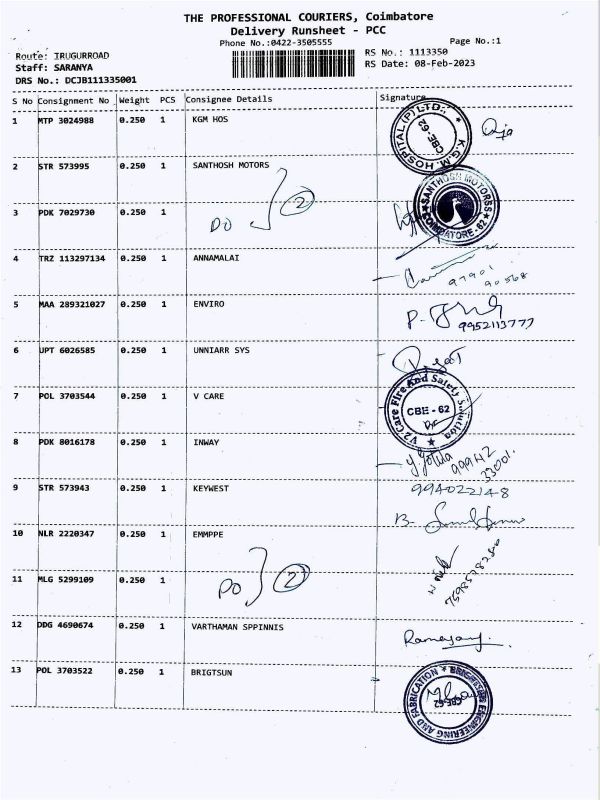 THE PROFESSIONAL COURIERS, Coimbatore
Delivery Runsheet - PCC
Phone No.:0422-3505555
Page No.:1
Route: IRUGURROAD
RS No.: 1113350
Staff: SARANYA
RS Date: 08-Feb-2023
DRS No.: DCJB111335001
S No Consignment No Weight PCS Consignee Details Signature
1 MTP 3024988 0.250 1 KGM HOS
K.G.M. HOSPITAL (P) LTD.,
CBE-62
2 STR 573995 0.250 1 SANTHOSH MOTORS
DO 2
SANTHOSH MOTORSS
COIMBATORE-62
3 PDK 7029730 0.250 1
4 TRZ 113297134 0.250 1 ANNAMALAI
97901
90568
5 MAA 289321027 0.250 1 ENVIRO
9952113777
6 UPT 6026585 0.250 1 UNNIARR SYS
7 POL 3703544 0.250 1 V CARE
V2 Care Fire And Safety Solution
CBE - 62
8 PDK 8016178 0.250 1 INWAY
9 STR 573943 0.250 1 KEYWEST
994022148
10 NLR 2220347 0.250 1 EMMPPE
DO 2
11 MLG 5299109 0.250 1
12 DDG 4690674 0.250 1 VARTHAMAN SPPINNIS
13 POL 3703522 0.250 1 BRIGTSUN
ENGINEERING AND FABRICATION
CBE-62